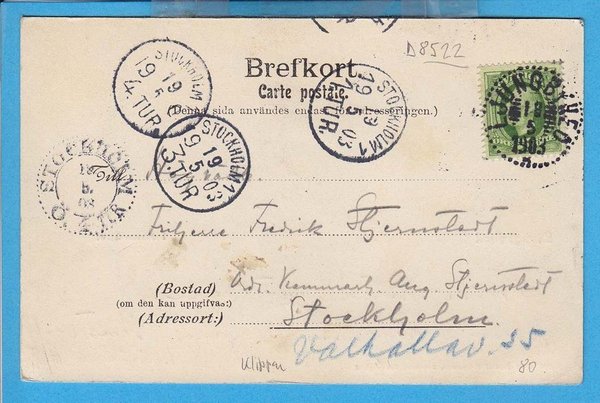 D8522
Brefkort
Carte postale.
(Denna sida användes endast för adresseringen.)
STOCKHOLM
19 5 03
4. TUR
STOCKHOLM 1
19 5 03
1. TUR.
STOCKHOLM 1
19 5 03
3. TUR
STOCKHOLM
Ö. TUR
LJUNGBYHED
18
5
1903
Friherre Fredrik Stjernstedt
Adr. Kammarh. Aug. Stjernstedt
(Bostad)
(om den kan uppgifvas:)
(Adressort:)
Stockholm
Valhallav. 25
Klippan
80